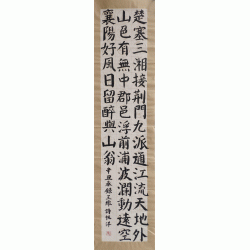 楚塞三湘接荊門九派通江流天地外
山色有無中郡邑浮前浦波瀾動遠空
襄陽好風日留醉與山翁